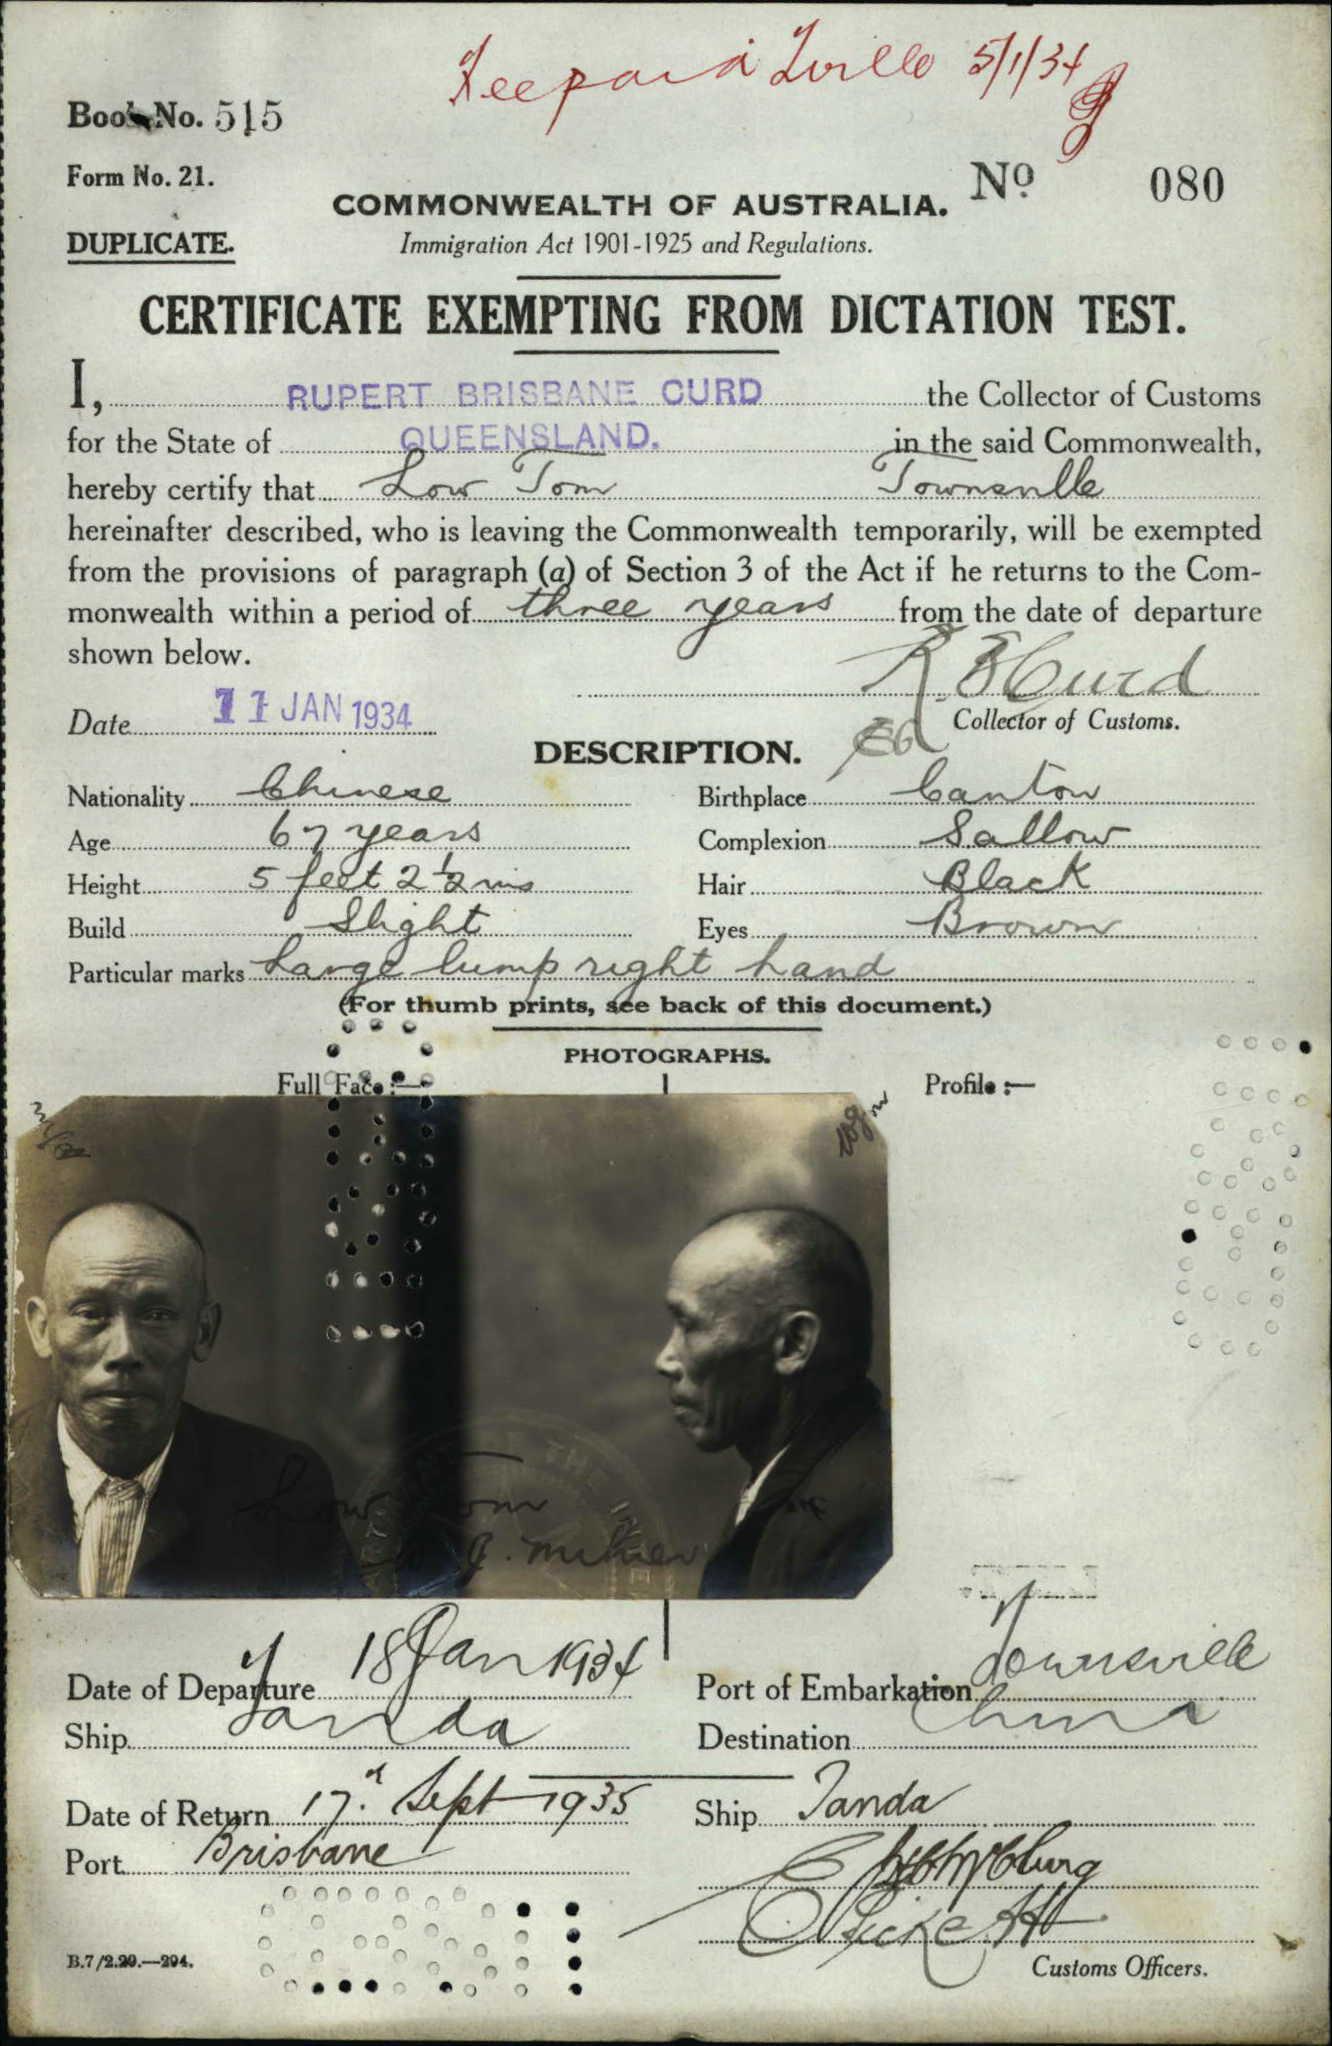 Fee paid Tville 5/1/34
Book No. 515
Form No. 21.
No 080
COMMONWEALTH OF AUSTRALIA.
DUPLICATE.
Immigration Act 1901-1925 and Regulations.
CERTIFICATE EXEMPTING FROM DICTATION TEST.
I, RUPERT BRISBANE CURD the Collector of Customs
for the State of QUEENSLAND. in the said Commonwealth,
hereby certify that Low Tom Townsville
hereinafter described, who is leaving the Commonwealth temporarily, will be exempted
from the provisions of paragraph (a) of Section 3 of the Act if he returns to the Com-
monwealth within a period of three years from the date of departure
shown below.
R B Curd
Date 11 JAN 1934
Collector of Customs.
DESCRIPTION.
Nationality Chinese Birthplace Canton
Age 67 years Complexion Sallow
Height 5 feet 2 1/2 ins Hair Black
Build Slight Eyes Brown
Particular marks Large lump right hand
(For thumb prints, see back of this document.)
PHOTOGRAPHS.
Full Face :— Profile :—
Low Tom
Date of Departure 18 Jan 1934 Port of Embarkation Townsville
Ship Tanda Destination China
Date of Return 17. Sept 1935 Ship Tanda
Port Brisbane
B.7/2.29.—294.
Customs Officers.